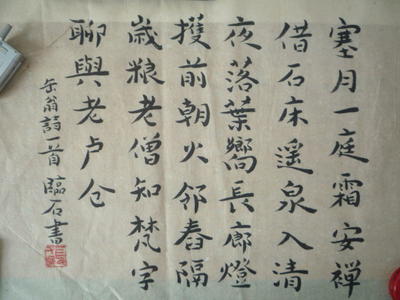 塞月一庭霜安禅
借石床遥泉入清
夜落葉嚮長廊燈
擭前朝火邻舂隔
歲粮老僧知梵字
聊與老卢仓
岳翁詩一首臨石書